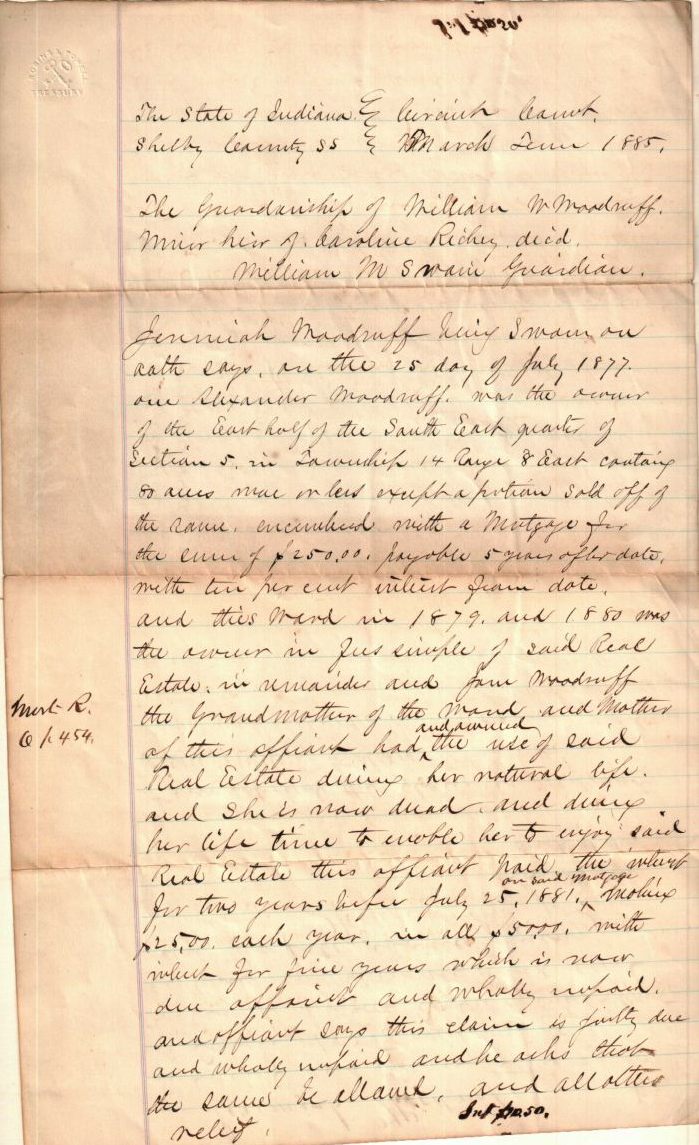 The State of Indiana } Circuit Court,
Shelby County SS } March Term 1885.
The Guardianship of William W Woodruff.
Minor heir of Caroline Richey, dec'd.
William M Swain Guardian.
Jeremiah Woodruff being Sworn on
oath says, on the 25 day of July 1877.
one Alexander Woodruff. was the owner
of the East half of the South East quarter of
Section 5. in Township 14 Range 8 East containg
80 acres more or less except a potion sold off of
the same. encumbered with a Mortgage for
the sum of $250.00. payable 5 years after date.
with ten per cent interest from date.
and this Ward in 1879. and 1880 was
the owner in fee simple of said Real
Estate. in remainder and Jane Woodruff
Mort R.
6 p. 454.
the Grandmother of the Ward and Mother
of this affiant had and owned the use of said
Real Estate during her natural life.
and she is now dead. and during
her life time to enoble her to enjoy said
Real Estate this affiant paid the interest
for two years before July 25, 1881, on said Mortgage making
$25.00. each year, in all $50.00. with
interest for five years which is now
due affiant and wholly unpaid.
and affiant says this claim is justly due
and wholy unpaid and he asks that
the same be allowed, and all other
relief.
Int $10.50.